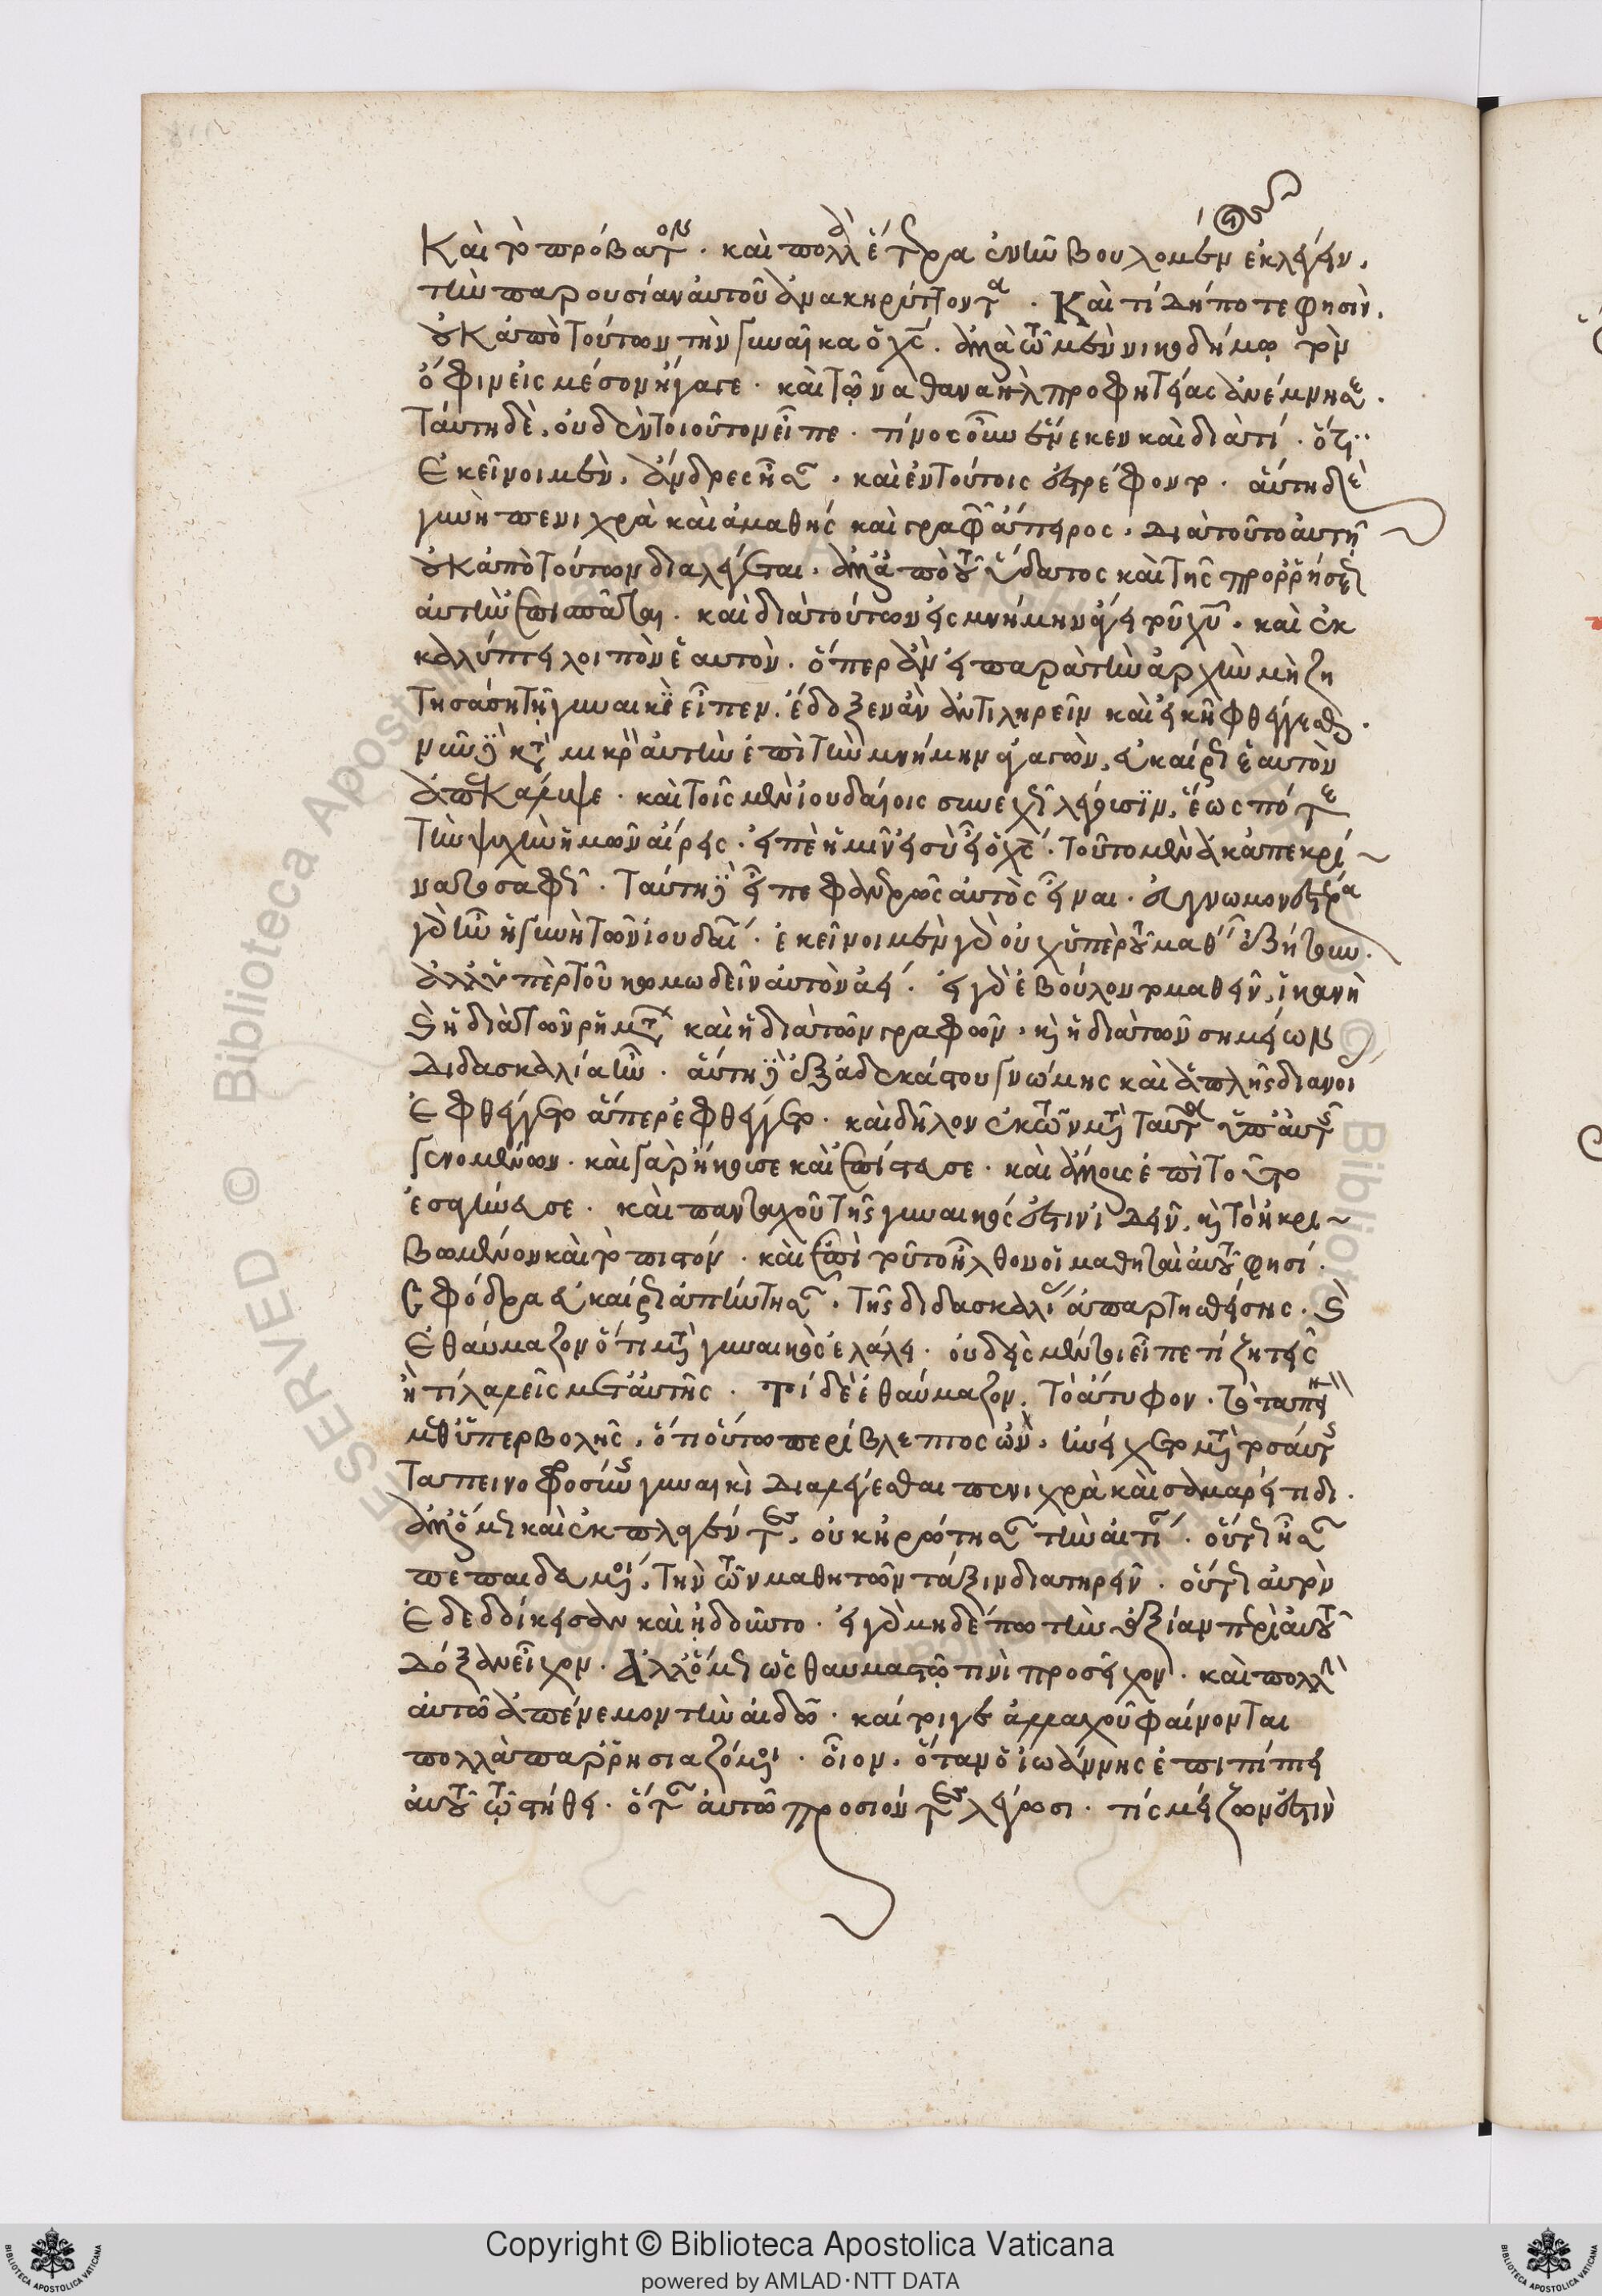 Καὶ τὸ πρόβατον. καὶ πολλὰ ἕτερα ἐνῆν βουλομένῳ ἐκλέγειν,
τὴν παρουσίαν αὐτοῦ ἀνακηρύττοντα. Καὶ τί δήποτε φησὶν,
οὐκ ἀπὸ τούτων τὴν γυναῖκα ὁ χς. ἀλλὰ τῶ μὲν νικοδήμῳ τὸν
ὄφιν εἰς μέσον ἤγαγε. καὶ τῷ ναθαναὴλ προφητείας ἀνέμνησε.
ταύτη δὲ, οὐδὲν τοιοῦτον εἶπε. τίνος οὖν ἕνεκεν καὶ διατί. ὅτι
ἐκεῖνοι μὲν, ἄνδρες ἦσαν. καὶ ἐν τούτοις ἐστρέφοντο. αὕτη δὲ
γυνὴ πενιχρὰ καὶ ἀμαθὴς καὶ γραφῶν ἄπειρος. διὰ τοῦτο αὐτῆ
οὐκ ἀπὸ τούτων διαλέγεται. ἀλλ' ἀπὸ τοῦ ὕδατος καὶ τῆς προρρήσεως
αὐτὴν ἐπισπᾶται. καὶ διὰ τούτων εἰς μνήμην ἄγει τοῦ χυ. καὶ ἐκ
καλύπτει λοιπὸν ἑαυτόν. ὅπερ ἂν εἰ παρὰ τὴν ἀρχὴν μὴ ζη
τησάσῃ τῇ γυναικὶ εἶπεν, ἔδοξεν ἂν ἀντιληρεῖν καὶ εἰκῆ φθέγγεσθαι.
νῦν δὲ κατὰ μικρὸν αὐτὴν ἐπὶ τὴν μνήμην ἀγαγὼν, εὐκαίρως ἑαυτὸν
ἀπεκάλυψε. καὶ τοῖς μὲν ἰουδαίοις συνεχῶς λέγουσιν, ἕως πότε
τὴν ψυχὴν ἡμῶν αἴρεις. εἰπὲ ἡμῖν εἰ σὺ εἶ ὁ χς. τοῦτο μὲν οὐκ ἀπεκρί
νατο σαφῶς. ταύτη δὲ εἶπε φανερῶς αὐτὸς εἶναι. εὐγνωμονεστέρα
γὰρ ἦν ἡ γυνὴ τῶν ἰουδαίων. ἐκεῖνοι μὲν γὰρ οὐχ ὑπὲρ τοῦ μαθεῖν ἐζήτουν.
ἀλλ' ὑπὲρ τοῦ κωμωδεῖν αὐτὸν ἀεί. εἰ γὰρ ἐβούλοντο μαθεῖν, ἱκανὴ
καὶ ἡ διὰ τῶν ῥημάτων καὶ ἡ διὰ τῶν γραφῶν. καὶ ἡ διὰ τῶν σημείων
διδασκαλία ἦν. αὕτη δὲ ἐξ ἀδεκάστου γνώμης καὶ ἁπλῆς διανοί
ἐφθέγγετο ἅπερ ἐφθέγγετο. καὶ δῆλον ἐκ τῶν μετὰ ταῦτα ὑπ' αὐτῆς
γενομένων. καὶ γὰρ ἤκουσε καὶ ἐπίστευσε. καὶ ἄλλους ἐπὶ τοῦτο
ἐσαγήνευσε. καὶ πανταχοῦ τῆς γυναικός ἐστιν ἰδεῖν, καὶ τὸ ἠκρι
βωμένον καὶ τὸ πιστόν. καὶ ἐπὶ τοῦτο ἦλθον οἱ μαθηταὶ αὐτοῦ φησί.
Σφόδρα εὐκαίρως ἀπήντησαν, τῆς διδασκαλίας ἀπαρτισθείσης. καὶ
ἐθαύμαζον ὅτι μετὰ γυναικὸς ἐλάλει. οὐδεὶς μέντοι εἶπε τί ζητεῖς
ἢ τί λαλεῖς μετ' αὐτῆς. Τί δὲ ἐθαύμαζον. τὸ ἄτυφον. τὸ ταπεινὸν
μεθ' ὑπερβολῆς, ὅτι οὕτω περίβλεπτος ὢν, ἠνείχετο μετὰ τοσαύτης
ταπεινοφροσύνης γυναικὶ διαλέγεσθαι πενιχρᾶ καὶ σαμαρείτιδι.
ἀλλ' ὅμως καὶ ἐκπλαγέντες, οὐκ ἠρώτησαν τὴν αἰτίαν. οὕτως ἦσαν
πεπαιδευμένοι, τὴν τῶν μαθητῶν τάξιν διατηρεῖν. οὕτως αὐτὸν
ἐδεδοίκεσαν καὶ ἠδοῦντο. εἰ γὰρ μηδέπω τὴν ἀξίαν περὶ αὐτοῦ
δόξαν εἶχον. ἀλλ' ὅμως ὡς θαυμαστῷ τινὶ προσεῖχον. καὶ πολλὴν
αὐτῶ ἀπένεμον τὴν αἰδῶ. καίτοιγε ἀλλαχοῦ φαίνονται
πολλὰ παρρησιαζόμενοι. οἷον, ὅταν ὁ ἰωάννης ἐπιπίπτει
αὐτοῦ τῷ στήθει. ὅταν αὐτῶ προσιόντες λέγωσι. τίς μείζων ἐστὶν
Copyright © Biblioteca Apostolica Vaticana
powered by AMLAD·NTT DATA